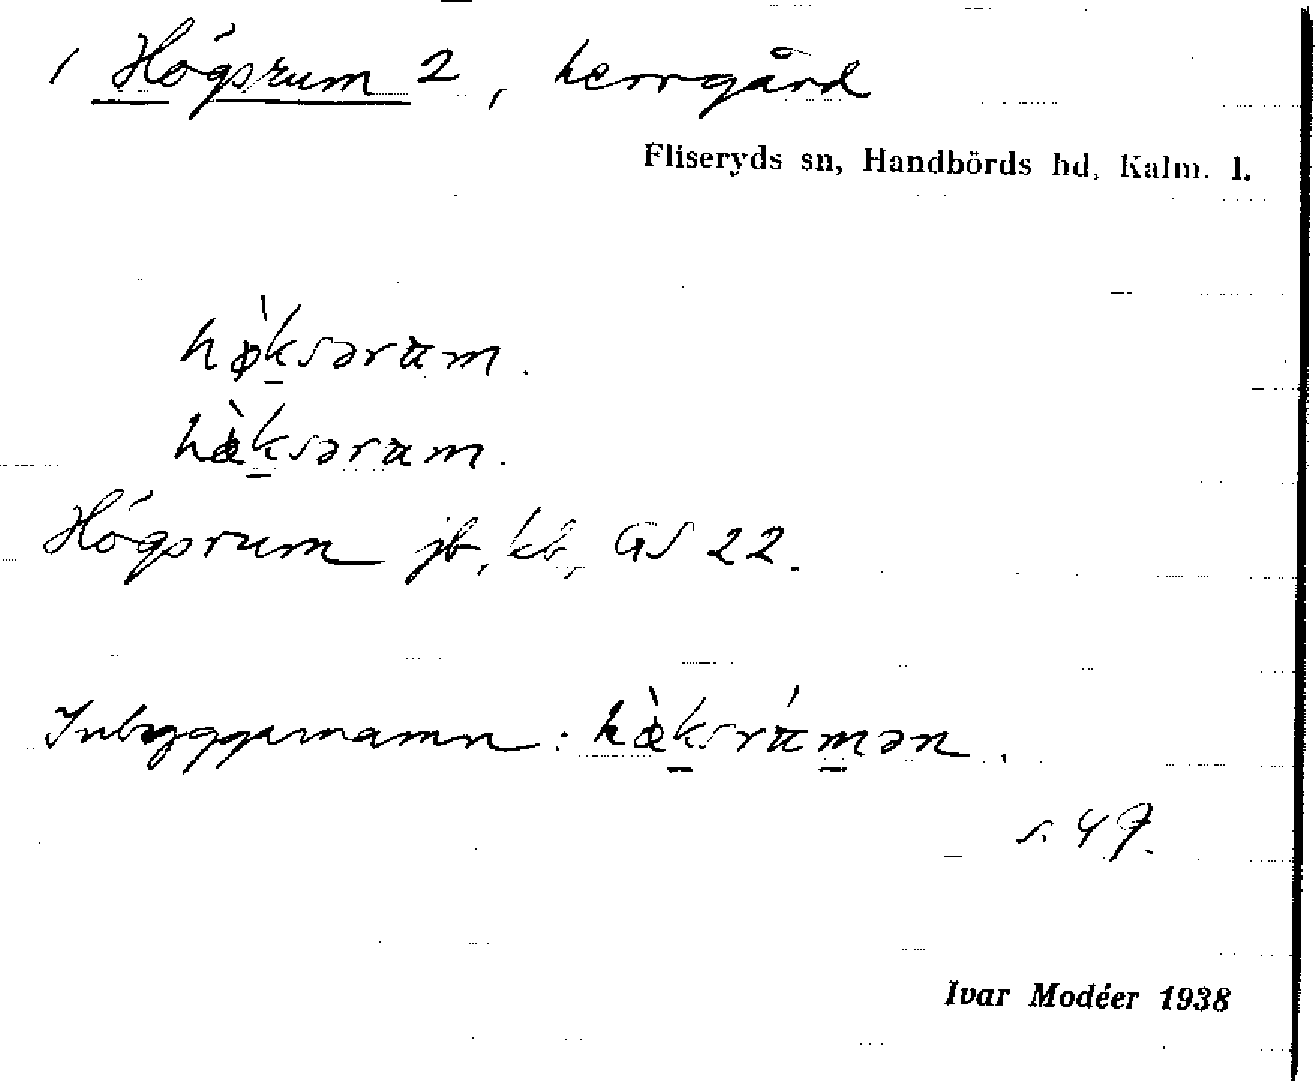 1 Högsrum 2, herrgård
Fliseryds sn, Handbörds hd, Kalm. l.
hø̀ksəram.
hæ̀ksəram.
Högsrum jb, kb, GS 22.
Inbyggarnamn: hæ̀ksrámən.
s. 49.
Ivar Modéer 1938